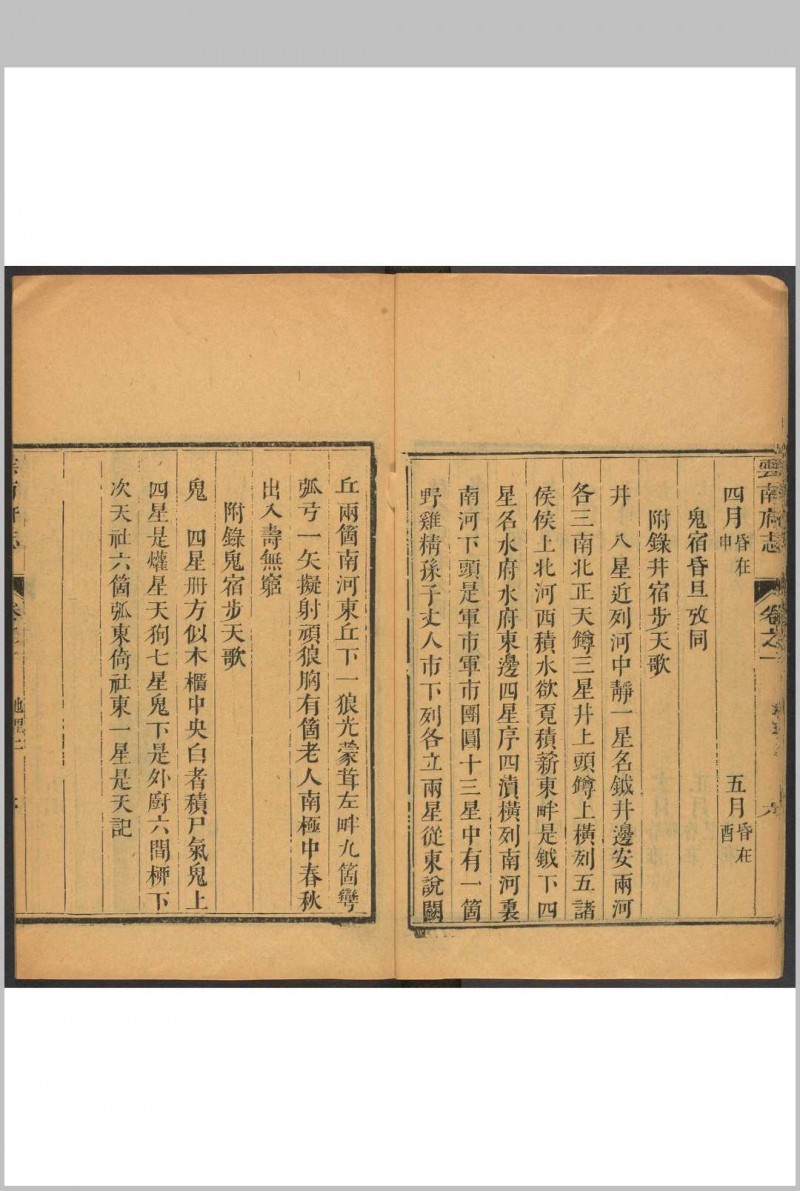 雲南府志 卷之一
四月昏在申 五月昏在酉
鬼宿昏旦攷同
附錄井宿步天歌
井 八星近列河中靜一星名鉞井邊安兩河
各三南北正天鐏三星井上頭鐏上橫列五諸
侯侯上北河西積水欲覓積薪東畔是鉞下四
星名水府水府東邊四星序四瀆橫列南河裏
南河下頭是軍市軍市團圓十三星中有一箇
野雞精孫子丈人市下列各立兩星從東說闕
丘兩箇南河東丘下一狼光蒙茸左畔九箇彎
弧弓一矢擬射頑狼胸有箇老人南極中春秋
出入壽無窮
附錄鬼宿步天歌
鬼 四星冊方似木櫃中央白者積尸氣鬼上
四星是爟星天狗七星鬼下是外廚六間栁下
次天社六箇弧東倚社東一星是天記